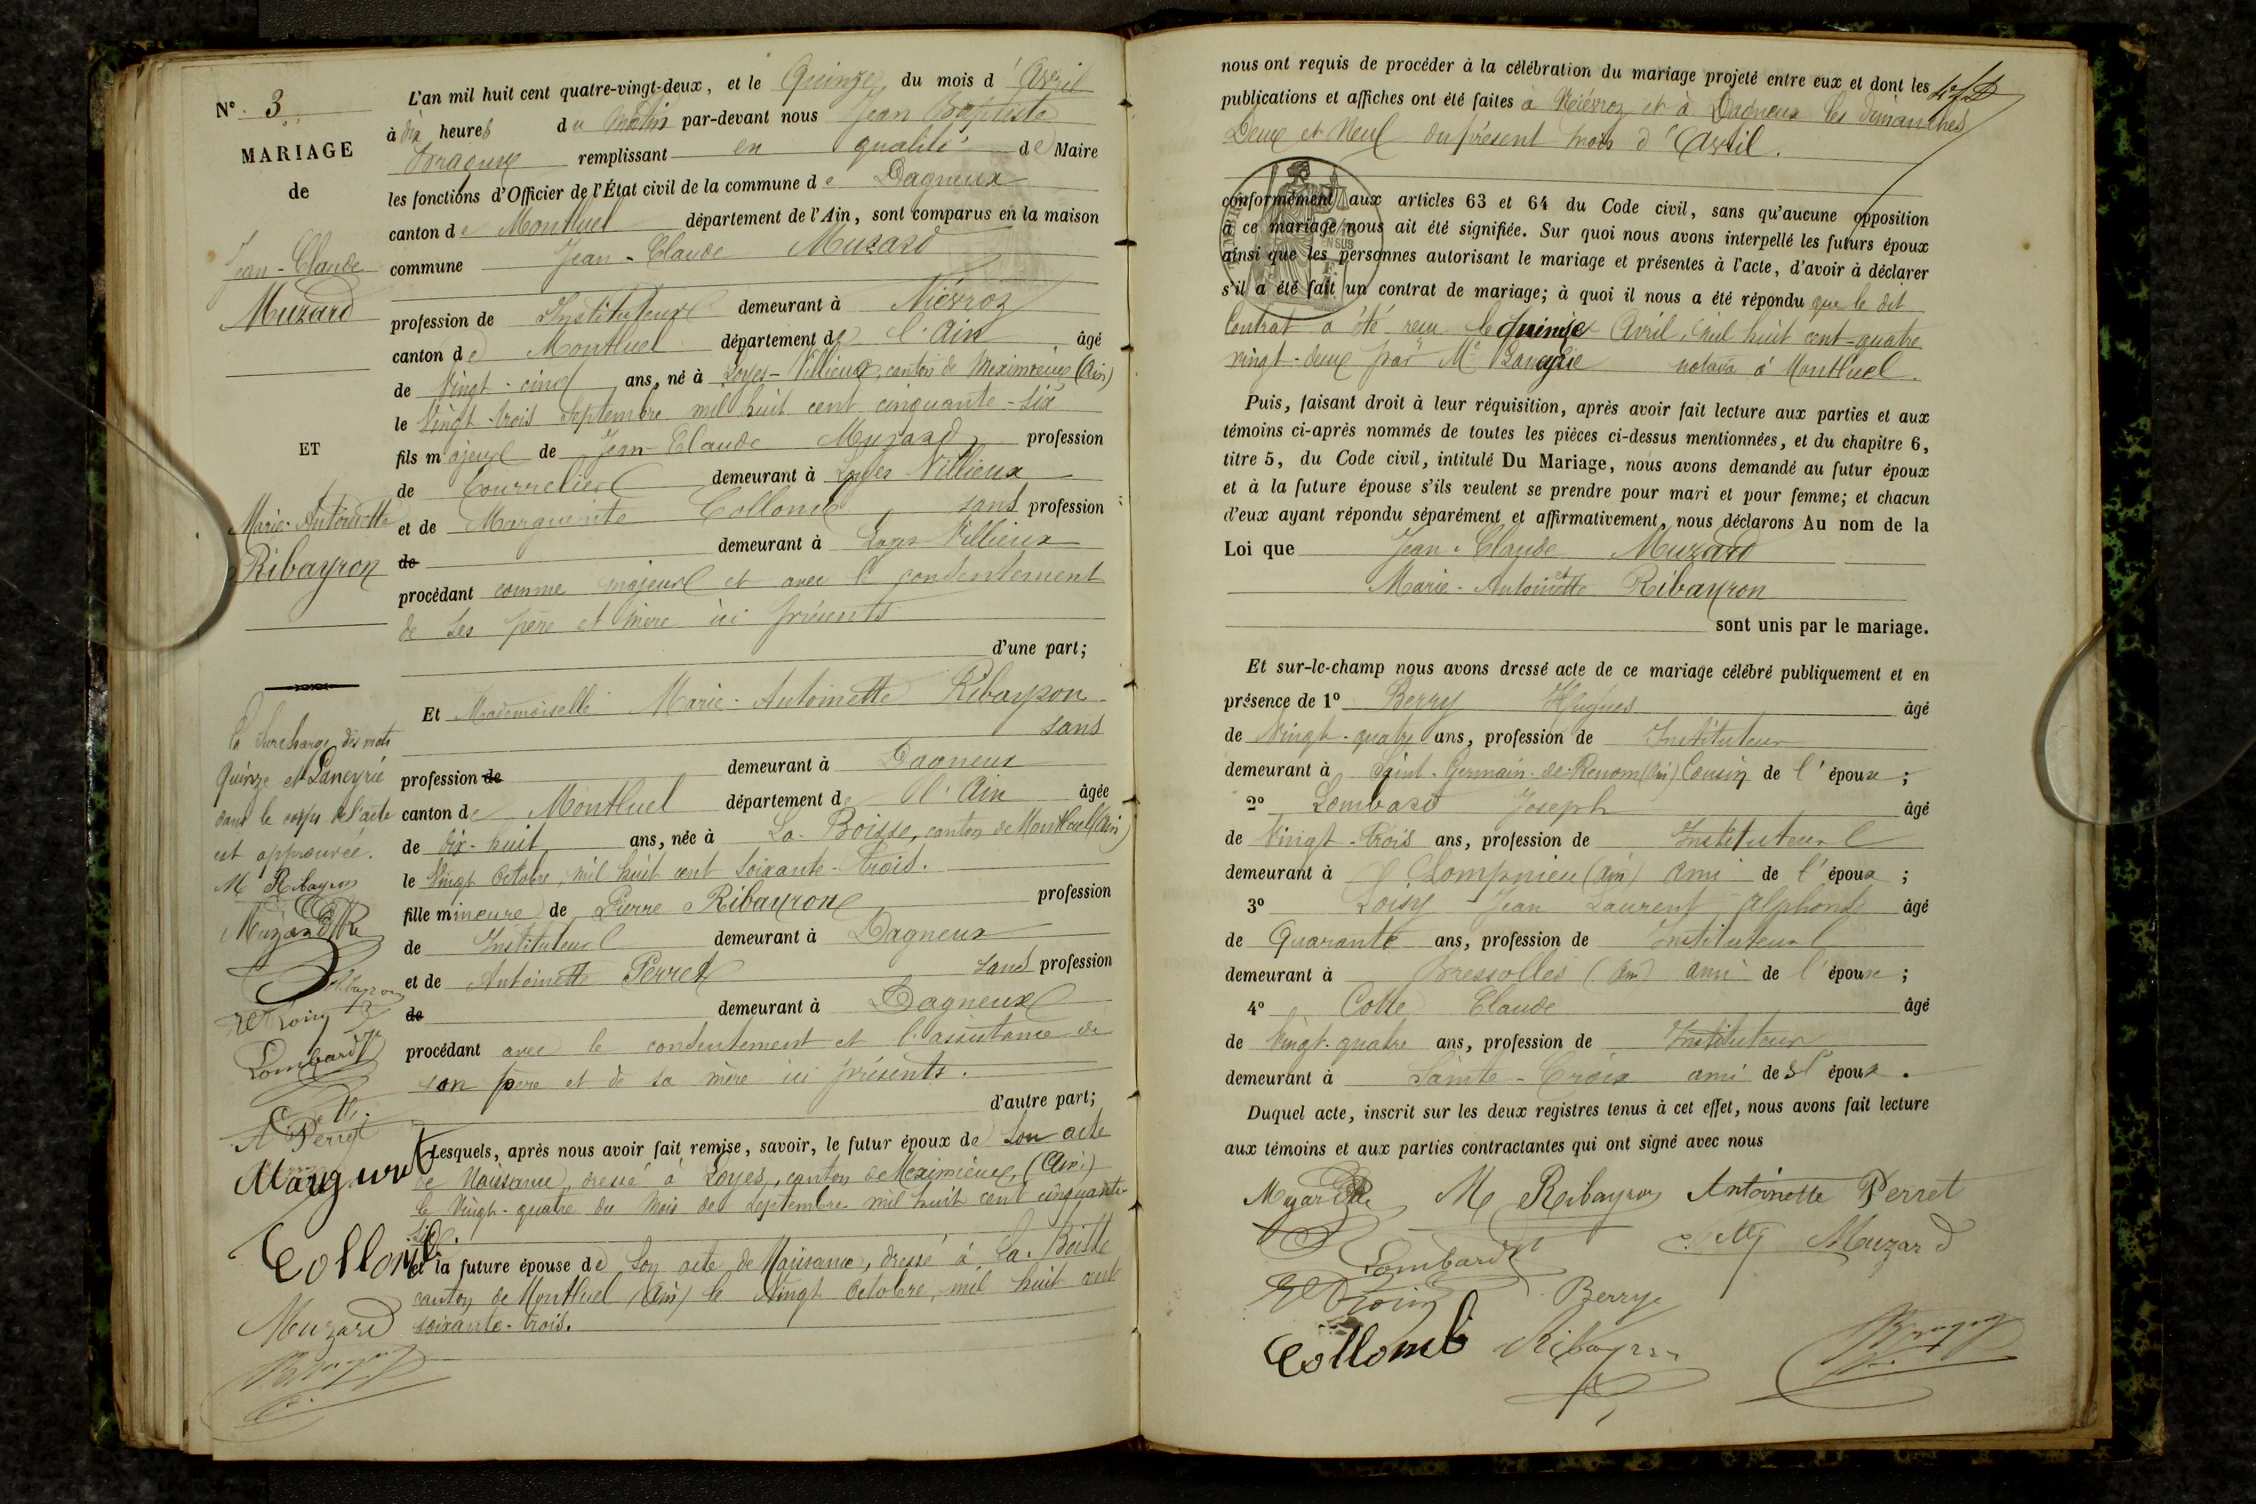 N° 3
MARIAGE
de
Jean-Claude
Muzard
ET
Marie-Antoinette
Ribayron
La surcharge des mots
Quinze et Laneyrie
dans le corps de l'acte
est approuvée.
M Ribayron
Muzard
Ribayron
Loisy
Lombard
A Perret
Collomb
Muzard
L'an mil huit cent quatre-vingt-deux, et le Quinze du mois d'Avril
à dix heures du Matin par-devant nous Jean Baptiste
remplissant en qualité de Maire
les fonctions d'Officier de l'État civil de la commune de Dagneux
canton de Montluel département de l'Ain, sont comparus en la maison
commune Jean-Claude Muzard
profession de Instituteur demeurant à Niévroz
canton de Montluel département de l'Ain âgé
de Vingt-cinq ans, né à Loyes-Villieux, canton de Meximieux (Ain)
le Vingt-trois Septembre mil huit cent cinquante-six
fils majeur de Jean-Claude Muzard profession
de Bourrelier demeurant à Loyes Villieux
et de Marguerite Collomb sans profession
de demeurant à Loyes Villieux
procédant comme majeur et avec le consentement
de ses père et mère ici présents
d'une part;
Et Mademoiselle Marie-Antoinette Ribayron
sans
profession de demeurant à Dagneux
canton de Montluel département de l'Ain âgée
de dix-huit ans, née à La Boisse, canton de Montluel (Ain)
le Vingt Octobre, mil huit cent soixante-trois.
fille mineure de Pierre Ribayron profession
de Instituteur demeurant à Dagneux
et de Antoinette Perret sans profession
de demeurant à Dagneux
procédant avec le consentement et l'assistance de
son père et de sa mère ici présents.
d'autre part;
Lesquels, après nous avoir fait remise, savoir, le futur époux de son acte
de Naissance, dressé à Loyes, canton de Meximieux, (Ain)
le Vingt-quatre du mois de Septembre mil huit cent cinquante-
six.
et la future épouse de son acte de Naissance, dressé à La Boisse
canton de Montluel (Ain) le Vingt Octobre, mil huit cent
soixante-trois.
nous ont requis de procéder à la célébration du mariage projeté entre eux et dont les
publications et affiches ont été faites à Niévroz et à Dagneux les dimanches
Deux et Neuf du présent mois d'Avril.
conformément aux articles 63 et 64 du Code civil, sans qu'aucune opposition
à ce mariage nous ait été signifiée. Sur quoi nous avons interpellé les futurs époux
ainsi que les personnes autorisant le mariage et présentes à l'acte, d'avoir à déclarer
s'il a été fait un contrat de mariage; à quoi il nous a été répondu que le dit
Contrat a été reçu le quinze Avril, mil huit cent-quatre
vingt-deux par Me Laneyrie notaire à Montluel.
Puis, faisant droit à leur réquisition, après avoir fait lecture aux parties et aux
témoins ci-après nommés de toutes les pièces ci-dessus mentionnées, et du chapitre 6,
titre 5, du Code civil, intitulé Du Mariage, nous avons demandé au futur époux
et à la future épouse s'ils veulent se prendre pour mari et pour femme; et chacun
d'eux ayant répondu séparément et affirmativement, nous déclarons Au nom de la
Loi que Jean-Claude Muzard
et
Marie-Antoinette Ribayron
sont unis par le mariage.
Et sur-le-champ nous avons dressé acte de ce mariage célébré publiquement et en
présence de 1° Berry Hugues âgé
de Vingt-quatre ans, profession de Instituteur
demeurant à Saint-Germain-de-Renom (Ain) Cousin de l'épouse;
2° Lombard Joseph âgé
de Vingt-trois ans, profession de Instituteur
demeurant à Lompnieu (Ain) ami de l'époux;
3° Loisy Jean Laurent Alphonse âgé
de Quarante ans, profession de Instituteur
demeurant à Bressolles (Ain) ami de l'épouse;
4° Cotte Claude âgé
de Vingt-quatre ans, profession de Instituteur
demeurant à Sainte-Croix ami de l'époux.
Duquel acte, inscrit sur les deux registres tenus à cet effet, nous avons fait lecture
aux témoins et aux parties contractantes qui ont signé avec nous
Muzard M Ribayron Antoinette Perret
Lombard Muzard
Loisy Berry
Collomb Ribayron